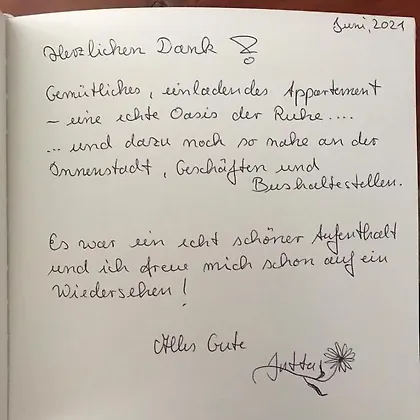 Juni, 2021
Herzlichen Dank !
Gemütliches, einladendes Appartement
- eine echte Oasis der Ruhe....
... und dazu noch so nahe an der
Innenstadt, Geschäften und
Bushaltestellen.
Es war ein echt schöner Aufenthalt
und ich freue mich schon auf ein
Wiedersehen!
Alles Gute
Jutta